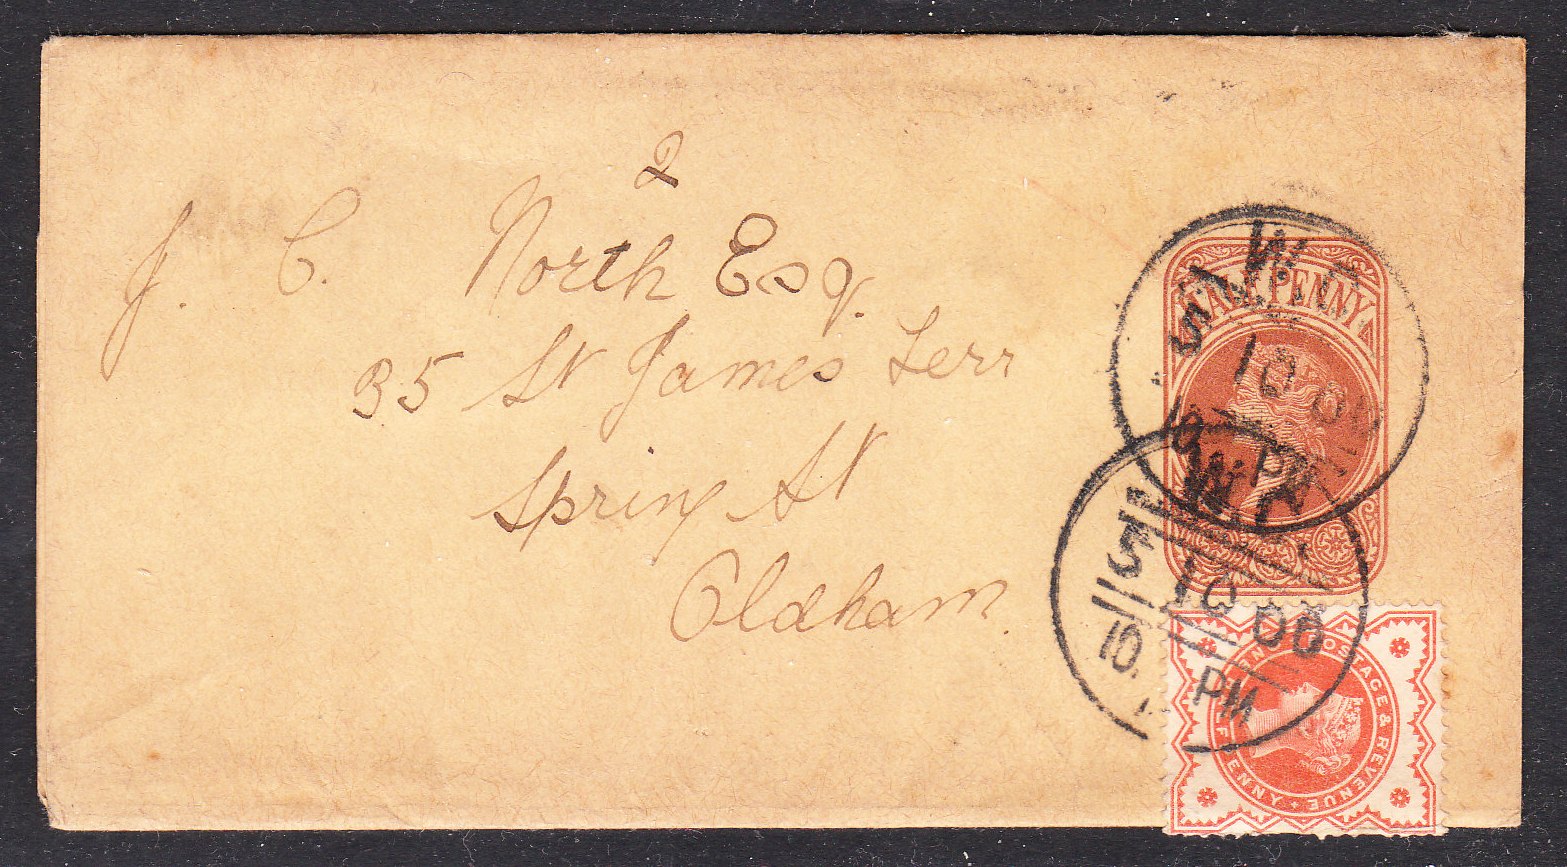 2
J. C. North Esq.
35 St James Terr
Spring St
Oldham.
HALF PENNY
W.C.
5
10
PM
W.C.
5
10
10
PM
POSTAGE & REVENUE
HALFPENNY